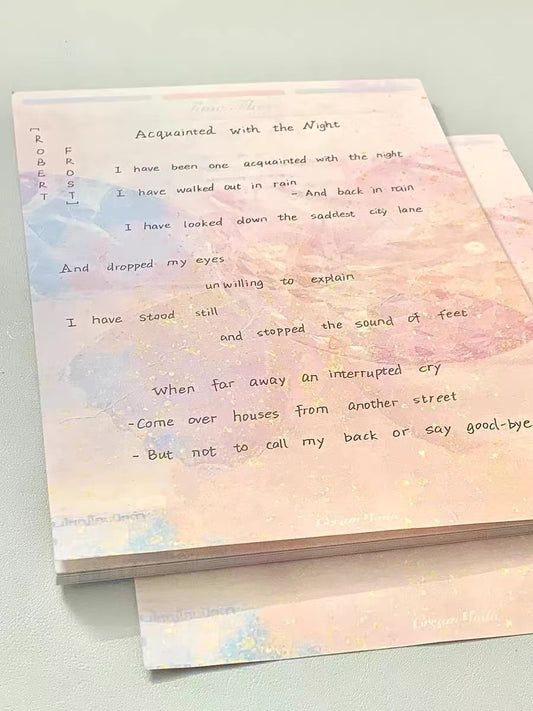 Acquainted with the Night
[ROBERT
FROST]
I have been one acquainted with the night
I have walked out in rain
- And back in rain
I have looked down the saddest city lane
And dropped my eyes
unwilling to explain
I have stood still
and stopped the sound of feet
When far away an interrupted cry
-Come over houses from another street
- But not to call my back or say good-bye